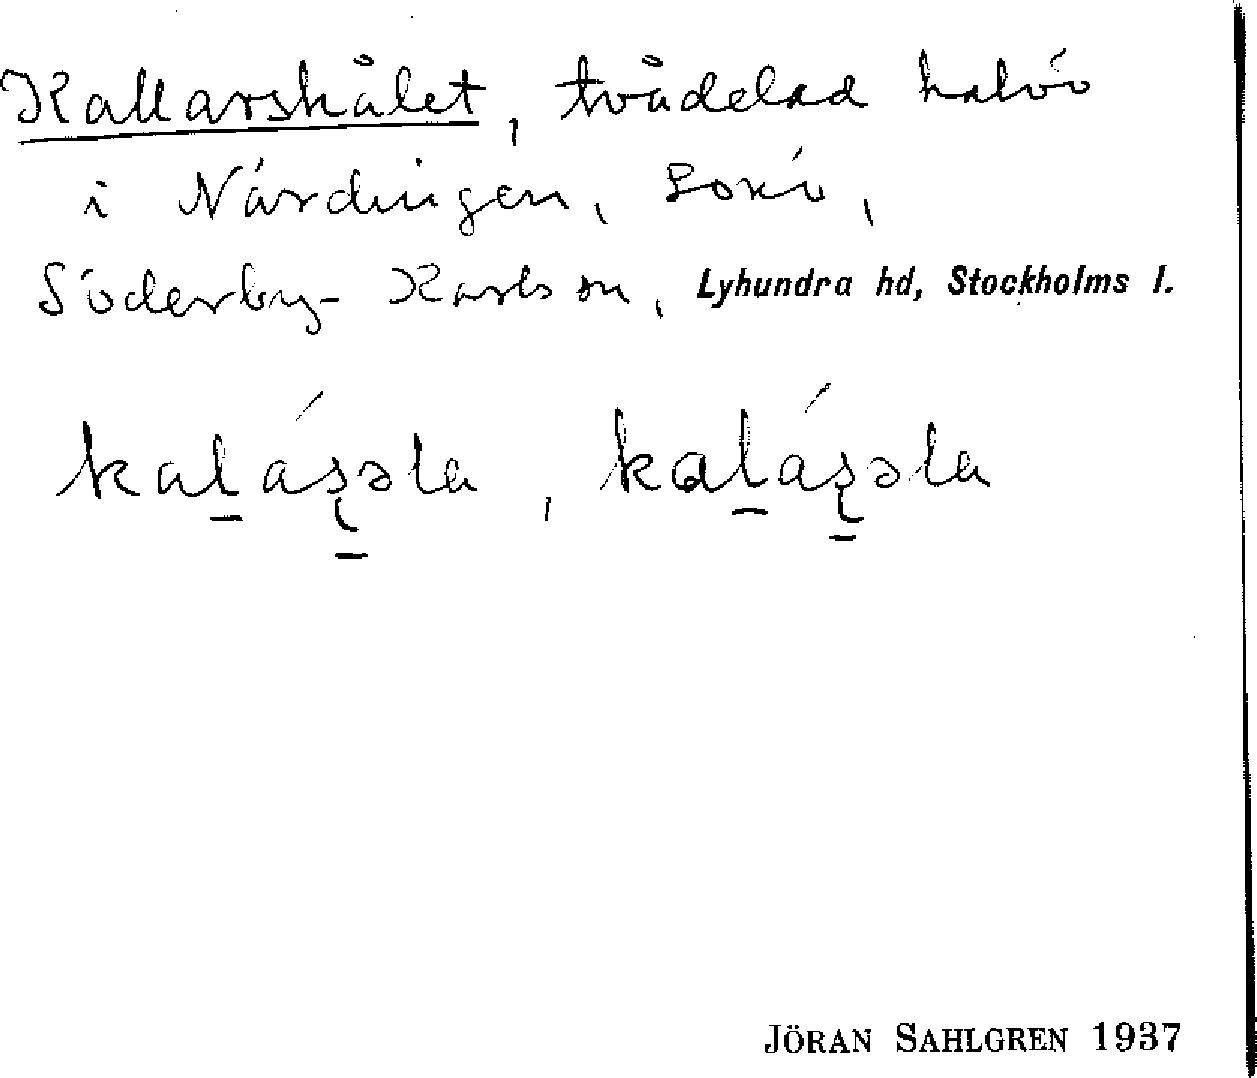 Kallarshålet, tvådelad halvö
i Närdingen, sokn,
Söderby-Karls sn, Lyhundra hd, Stockholms l.
JÖRAN SAHLGREN 1937